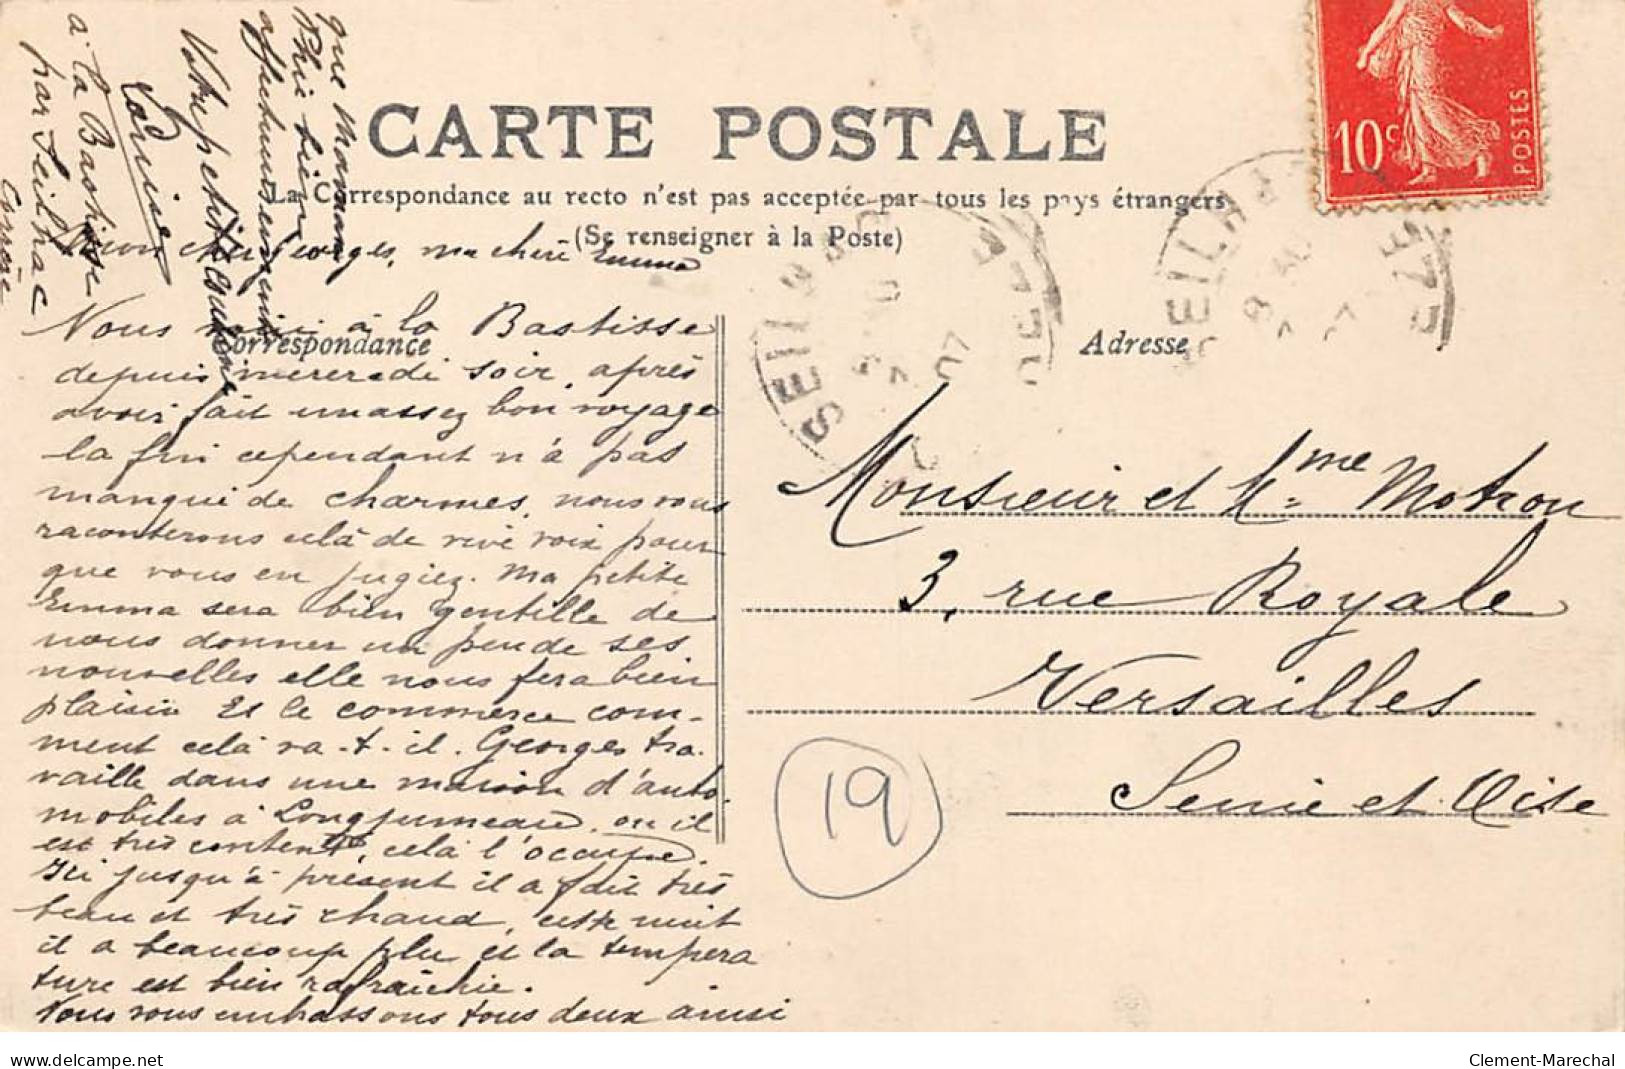 CARTE POSTALE
La Correspondance au recto n'est pas acceptée par tous les pays étrangers
(Se renseigner à la Poste)
Correspondance
Adresse
10c
POSTES
Mon cher Georges, ma chère Emma
Nous voici à la Bastisse
depuis mercredi soir, après
avoir fait un assez bon voyage
la fin cependant n'a pas
manqué de charmes, nous vous
raconterons celà de vive voix pour
que vous en jugiez. Ma petite
Emma sera bien gentille de
nous donner un peu de ses
nouvelles elle nous fera bien
plaisir Et le commerce com-
ment celà va-t-il. Georges tra-
vaille dans une maison d'auto
mobiles à Longjumeau, où il
est très content, celà l'occupe.
Ici jusqu'à présent il a fait très
beau et très chaud, cette nuit
il a beaucoup plu et la tempera
ture est bien rafraîchie.
Nous vous embrassons tous deux ainsi
que Maman
bien
affectueusement
Votre petite
à la Bastisse
par Seilhac
Corrèze
Monsieur et Mme Motron
3, rue Royale
Versailles
Seine et Oise
19
SEILHAC
SEILHAC
delcampe.net
Clement-Marechal